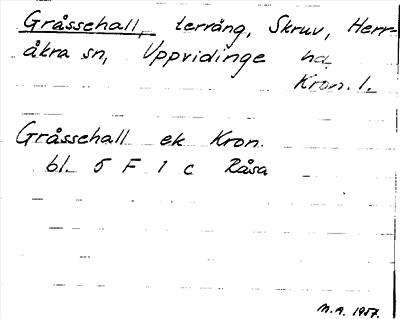 Gråssehall, terräng, Skruv, Herr-
åkra sn, Uppvidinge hd
Kron. l.
Gråssehall ek Kron.
bl. 5 F 1 c Råsa
M.A. 1957.